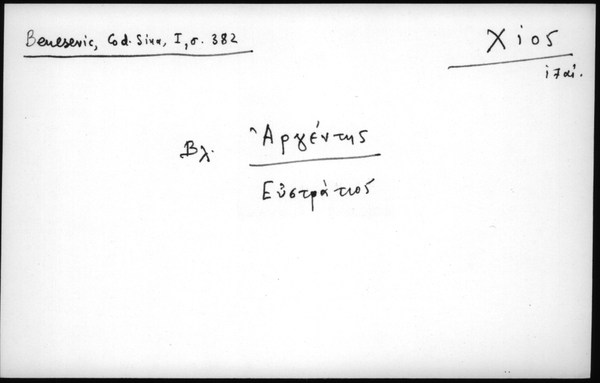 Benesevic, Cod. Sina, I, σ. 382
Χίος
Βλ. Ἀργέντης
Εὐστράτιος